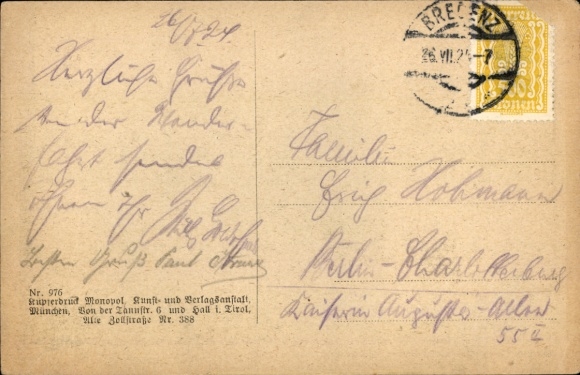 26/7 24.
Herzliche Grüße
von der Wander-
fahrt sendet
Ihnen Ihr
besten Gruß Paul
Nr. 976
Kupferdruck Monopol, Kunst- und Verlagsanstalt,
München, Von der Tannstr. 6 und Hall i. Tirol,
Alte Zollstraße Nr. 388
BREGENZ
26.VII.24-7
Familie
Erich Hohmann
Berlin-Charlottenburg
Kaiserin Augusta-Allee
55 II